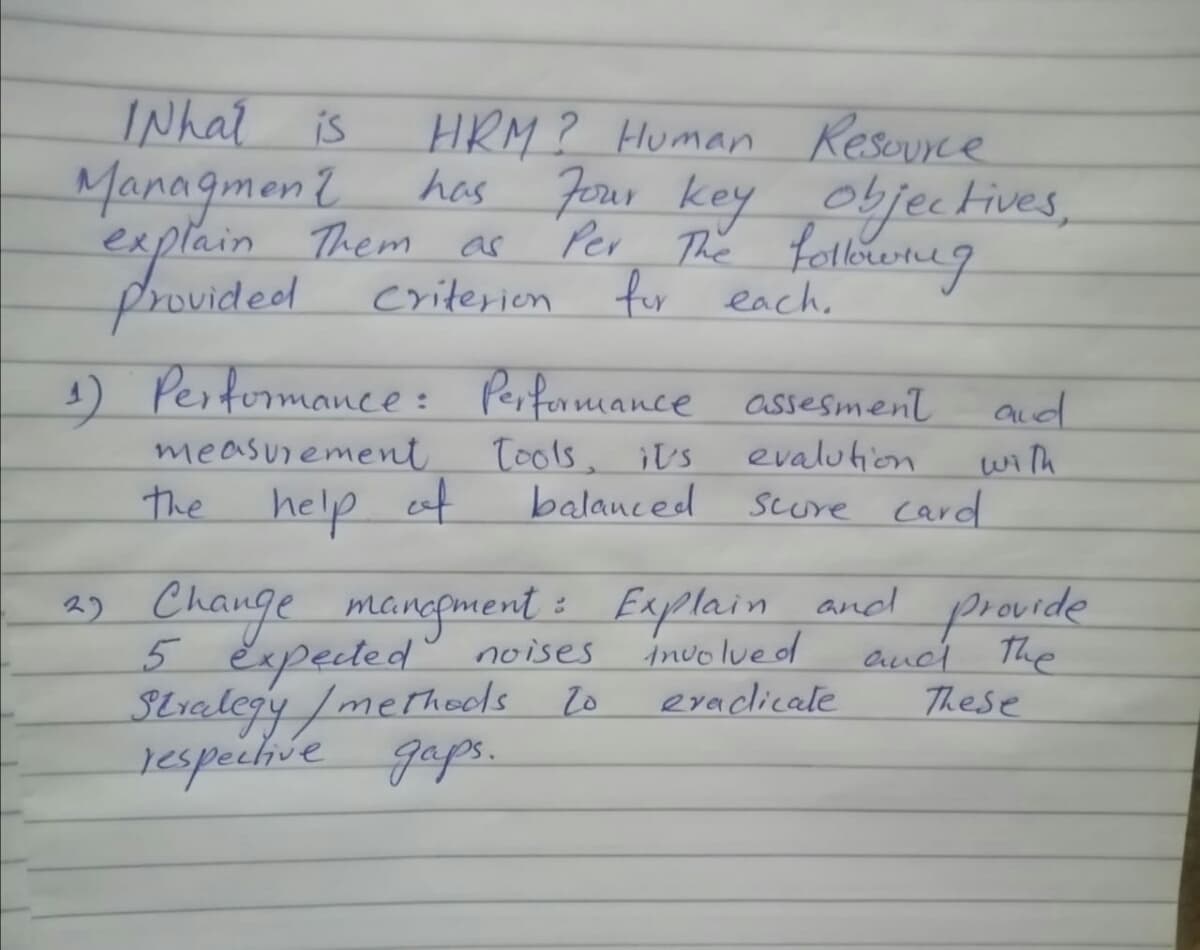 What is HRM? Human Resource
Managment has four key objectives,
explain them as Per The following
provided criterion for each.
1) Performance: Performance assesment and
measurement tools, it's evalution with
the help of balanced score card
2) Change managment: Explain and provide
5 expected noises involved and The
Strategy/methods to eradicate These
respective gaps.